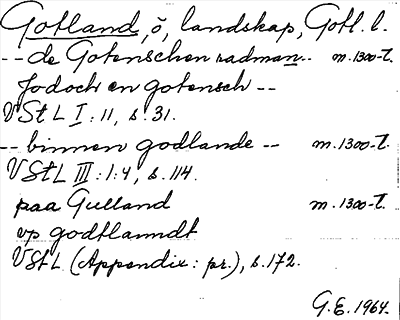 Gotland, ö, landskap, Gotl. l.
-- de Gotenschen radman -- m. 1300-t.
Jodoch en gotensch --
VStL I: 11, s. 31.
-- binnen godlande -- m. 1300-t.
VStL III: 1:4, s. 114.
paa Gulland m. 1300-t.
vp godtlanndt
VStL (Appendix: pr.), s. 172.
G.E. 1964.